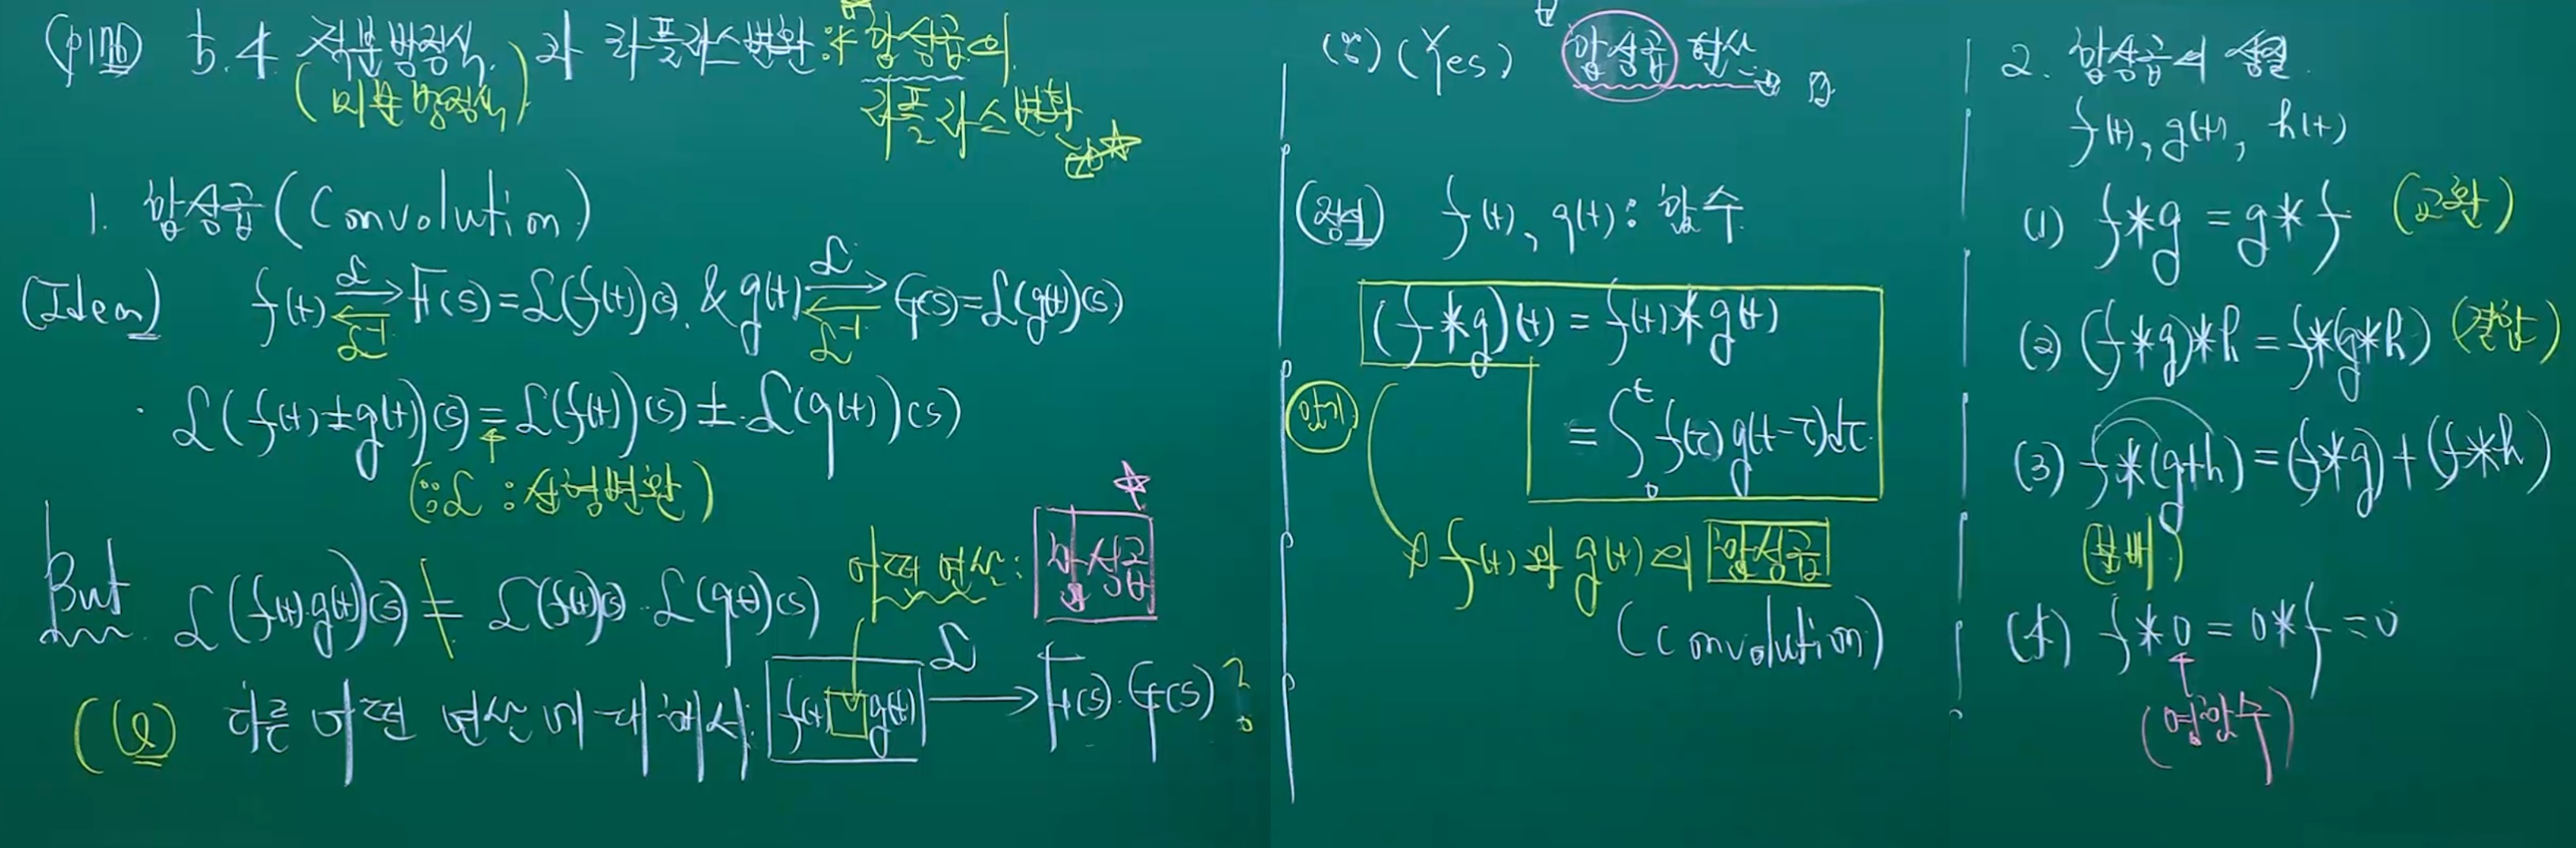 5.4 적분방정식과 라플라스변환 : 합성곱의
(미분방정식) 라플라스변환
1. 합성곱 (Convolution)
(Idea) f(t) ⟶ℒ F(s)=ℒ(f(t))(s) & g(t) ⟶ℒ G(s)=ℒ(g(t))(s)
ℒ⁻¹ ℒ⁻¹
· ℒ(f(t)±g(t))(s) = ℒ(f(t))(s) ± ℒ(g(t))(s)
(∵ℒ : 선형변환)
어떤 연산 : 합성곱
But ℒ(f(t)·g(t))(s) ≠ ℒ(f(t))(s)·ℒ(g(t))(s)
(Q) 다른 어떤 연산에 대해서 f(t)□g(t) ⟶ℒ F(s)·G(s)?
(Yes) 합성곱 연산
(정의) f(t), g(t) : 함수
(f*g)(t) = f(t)*g(t)
암기 = ∫₀ᵗ f(τ)g(t-τ)dτ
f(t)와 g(t)의 합성곱
(Convolution)
2. 합성곱의 성질
f(t), g(t), h(t)
(1) f*g = g*f (교환)
(2) (f*g)*h = f*(g*h) (결합)
(3) f*(g+h) = (f*g)+(f*h)
(분배)
(4) f*0 = 0*f = 0
(영함수)